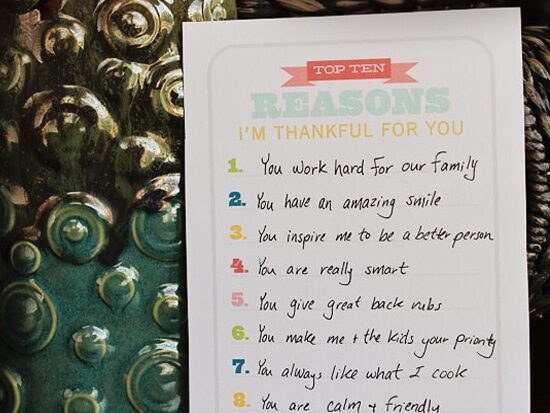 TOP TEN
REASONS
I'M THANKFUL FOR YOU
1. You work hard for our family
2. You have an amazing smile
3. You inspire me to be a better person
4. You are really smart
5. You give great back rubs
6. You make me + the kids your priority
7. You always like what I cook
8. You are calm + friendly